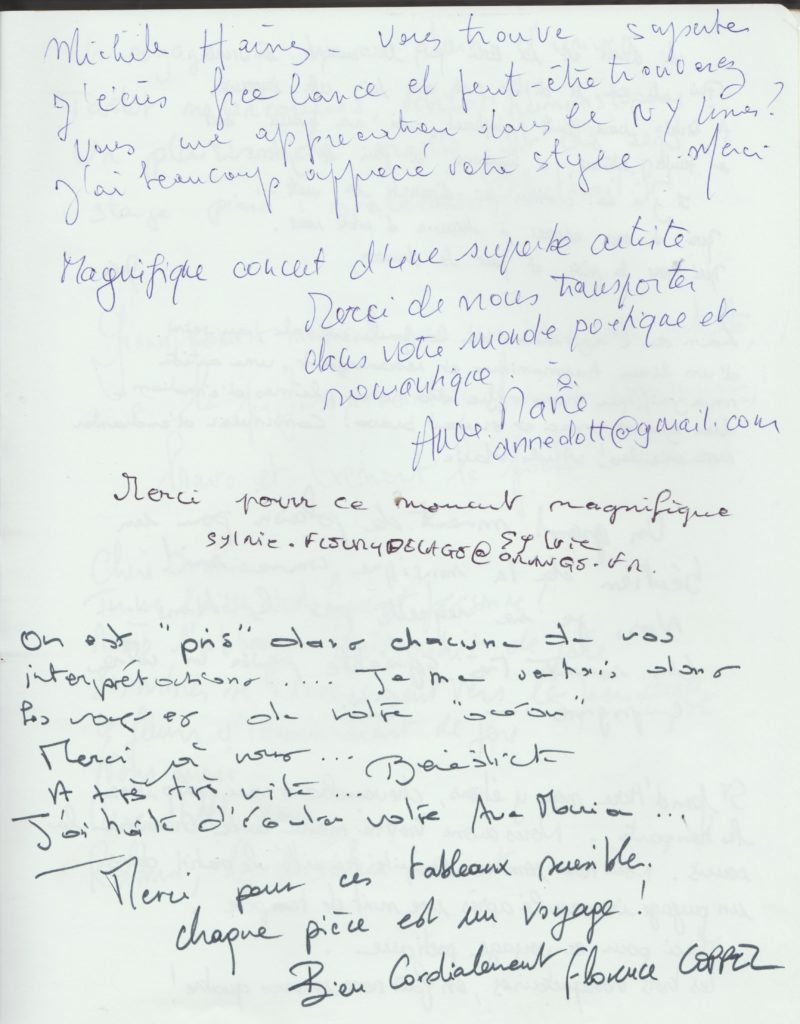 Michèle Haines - vous trouve superbe
J'écris free lance et peut-être trouverez
vous une appréciation dans le NY times?
J'ai beaucoup apprécié votre style. Merci
Magnifique concert d'une superbe artiste
Merci de nous transporter
dans votre monde poétique et
romantique.
Anne Marie
annedott@gmail.com
Merci pour ce moment magnifique
Sylvie
sylvie.FLEURYDELAGE@ORANGE.FR.
On est "pris" dans chacune de vos
interprétations ..... Je me sentais dans
les vagues de votre "océan"
Merci à vous ... Bénédicte
A très très vite ...
J'ai hâte d'écouter votre Ave Maria ...
Merci pour ces tableaux sensible.
chaque pièce est un voyage !
Bien Cordialement Florence